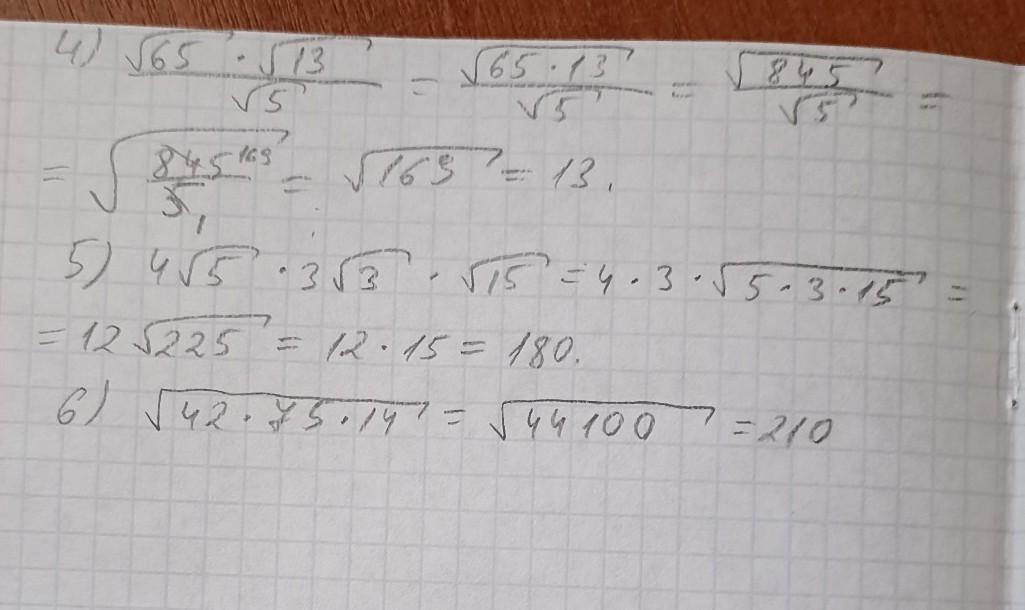 4) √65 · √13 / √5 = √65 · 13 / √5 = √845 / √5 =
= √845 169 / 5 1 = √169 = 13.
5) 4√5 · 3√3 · √15 = 4 · 3 · √5 · 3 · 15 =
= 12√225 = 12 · 15 = 180.
6) √42 · 75 · 14 = √44100 = 210